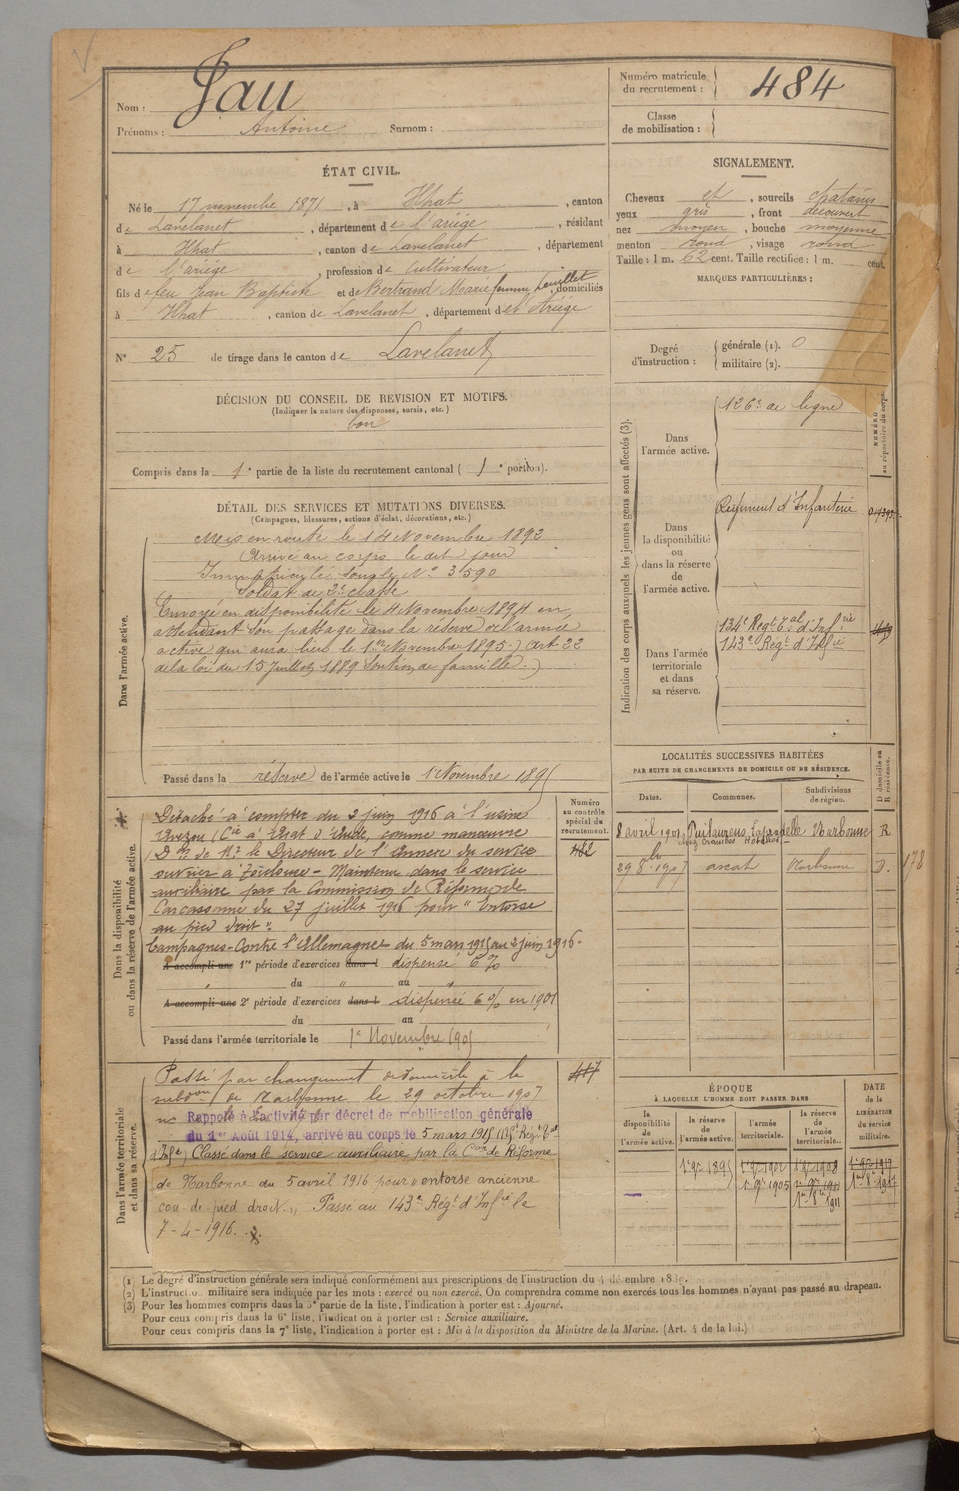 Nom : Jau
Prénoms : Antoine Surnom :
Numéro matricule du recrutement : 484
Classe de mobilisation :
ÉTAT CIVIL.
Né le 17 novembre 1871, à Ilhat, canton
de Lavelanet, département de l'ariège, résidant
à Ilhat, canton de Lavelanet, département
de l'ariège, profession de Cultivateur
fils de feu Jean Baptiste et de Bertrand Marie femme domiciliés
à Ilhat, canton de Lavelanet, département de l'Ariège
N° 25 de tirage dans le canton de Lavelanet
SIGNALEMENT.
Cheveux et, sourcils chatains
yeux gris, front découvert
nez moyen, bouche moyenne
menton rond, visage rond
Taille : 1 m. 62 cent. Taille rectifiée : 1 m. cent.
MARQUES PARTICULIÈRES :
Degré d'instruction : générale (1). 0
militaire (2).
DÉCISION DU CONSEIL DE REVISION ET MOTIFS.
(Indiquer la nature des dispenses, sursis, etc.)
bon
Compris dans la 1e partie de la liste du recrutement cantonal ( 1e portion).
DÉTAIL DES SERVICES ET MUTATIONS DIVERSES.
(Campagnes, blessures, actions d'éclat, décorations, etc.)
Dans l'armée active.
Mis en route le 14 Novembre 1892
Arrivé au corps le dit jour
Immatriculé sous le N° 3590
Soldat de 2e classe
Envoyé en disponibilité le 4 Novembre 1894 en
attendant son passage dans la réserve de l'armée
active qui aura lieu le 1er Novembre 1895 (art 22
de la loi du 15 Juillet 1889 Soutien de famille.)
Passé dans la réserve de l'armée active le 1 Novembre 1895
Indication des corps auxquels les jeunes gens sont affectés (3).
NUMÉRO au répertoire du corps.
Dans l'armée active.
126e de ligne
Dans la disponibilité ou dans la réserve de l'armée active.
Régiment d'Infanterie
Dans l'armée territoriale et dans sa réserve.
134e Regt Tal d'Infrie
143e Regt d'Infie
Dans la disponibilité ou dans la réserve de l'armée active.
Numéro au contrôle spécial du recrutement.
Détaché à compter du 2 juin 1916 à l'usine
(Cie à, comme manœuvre
Don de Mr le Directeur de l'annexe du service
ouvrier à Toulouse - Maintenu dans le service
auxiliaire par la Commission de Réforme de
Carcassonne du 27 juillet 1916 pour "Entorse
au pied droit".
Campagnes - Contre l'Allemagne du 5 mars 1915 au 2 juin 1916 -
462
A accompli une 1re période d'exercices dans l dispensé 6 %
du " au "
A accompli une 2e période d'exercices dans l dispensé 6 % en 1901
du au
Passé dans l'armée territoriale le 1e Novembre 1905
LOCALITÉS SUCCESSIVES HABITÉES
PAR SUITE DE CHANGEMENTS DE DOMICILE OU DE RÉSIDENCE.
Dates. Communes. Subdivisions de région. D domicile ou R résidence.
8 avril 1901 Puilaurens, Lapradelle Narbonne R
29 8bre 1907 axat Narbonne D. 178
Dans l'armée territoriale et dans sa réserve.
Passé par changement de domicile à la
subdon de Narbonne le 29 octobre 1907
417
Rappelé à l'activité par décret de mobilisation générale
du 1er Août 1914, arrivé au corps le 5 mars 1915 Regt Tal
d'Infie) Classé dans le service auxiliaire par la Con de Réforme
de Narbonne du 5 avril 1916 pour "entorse ancienne
cou-de-pied droit", Passé au 143e Regt d'Infie le
7-4-1916.
ÉPOQUE
À LAQUELLE L'HOMME DOIT PASSER DANS
la disponibilité de l'armée active.
la réserve de l'armée active.
l'armée territoriale.
la réserve de l'armée territoriale.
DATE de la LIBÉRATION du service militaire.
1 9bre 1895
1 9bre 1905
1911
(1) Le degré d'instruction générale sera indiqué conformément aux prescriptions de l'instruction du 4 décembre 1889.
(2) L'instruction militaire sera indiquée par les mots : exercé ou non exercé. On comprendra comme non exercés tous les hommes n'ayant pas passé au drapeau.
(3) Pour les hommes compris dans la 5e partie de la liste, l'indication à porter est : Ajourné.
Pour ceux compris dans la 6e liste, l'indication à porter est : Service auxiliaire.
Pour ceux compris dans la 7e liste, l'indication à porter est : Mis à la disposition du Ministre de la Marine. (Art. 4 de la loi.)